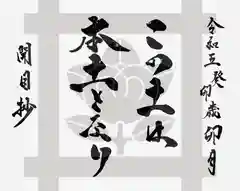 令和五癸卯歳 卯月
この土は
本土となり
開目抄